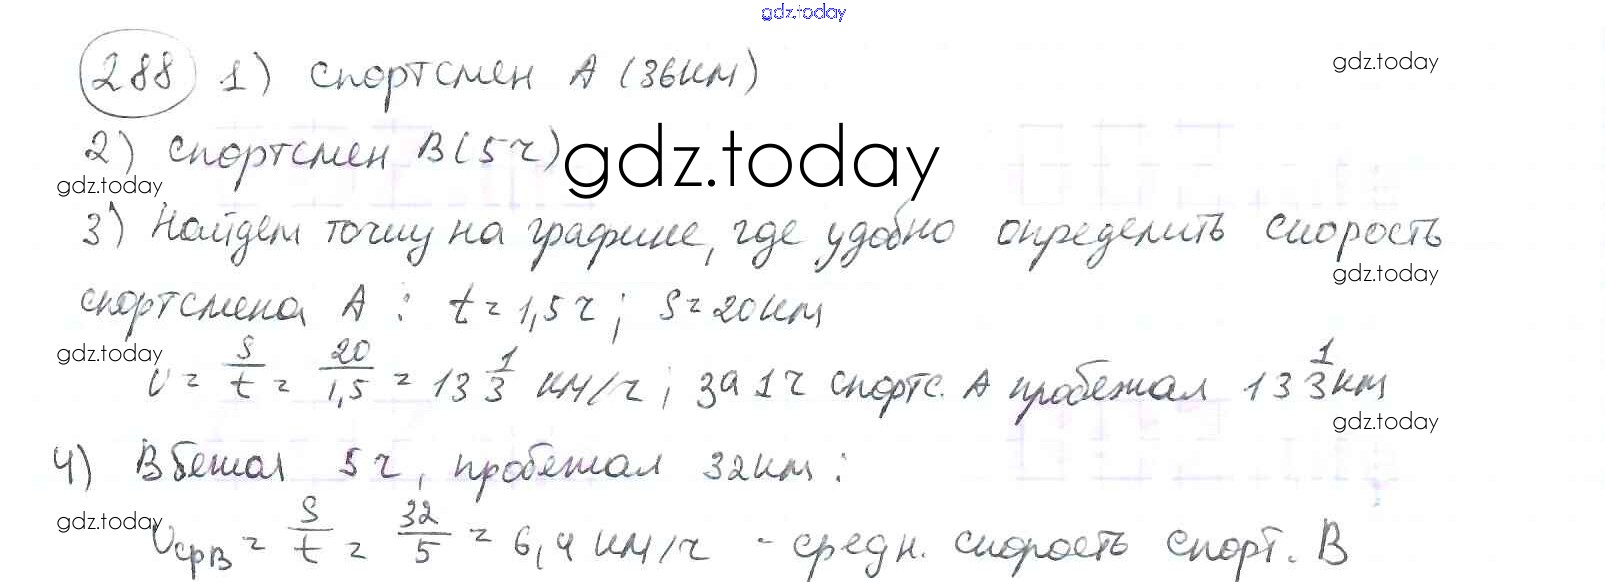 gdz.today
288 1) спортсмен А (36км) gdz.today
2) спортсмен В (5 ч) gdz.today
gdz.today
3) Найдем точку на графике, где удобно определить скорость
gdz.today
спортсмена А : t = 1,5 ч ; S = 20 км
gdz.today
v = S/t = 20/1,5 = 13 1/3 км/ч ; за 1 ч спортс. А пробежал 13 1/3 км
gdz.today
4) В бежал 5 ч, пробежал 32 км :
gdz.today
vсрВ = S/t = 32/5 = 6,4 км/ч - средн. скорость спорт. В